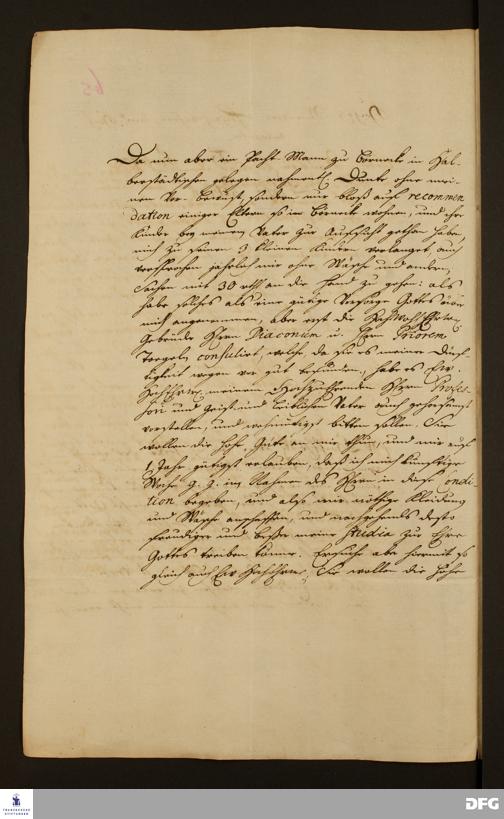 Da nun aber ein Pacht-Mann zu Börnecke in Hal-
berstädtischen gelegen nahmentl. Duntz ohne mei-
nen Vor-Bewust, sondern nur bloß auf recommen
dation einiger Eltern so in Börnecke wohnen, und ihre
Kinder bey meinem Vater zur Aufsicht gethan haben,
mich zu seinen 3 kleinen Kindern verlanget, auch
versprochen jährlich mir ohne Wäsche und andern
Sachen mit 30 rthl an die Hand zu gehen: als
habe solches als eine gütige Vorsorge Gottes über
mich angenommen, aber erst die
Gebrüder Herrn Diaconum u. Herrn Priorem
Torgels consuliret, welche, da sie es meiner Dürf-
tigkeit wegen vor gut befunden, habe es Ew.
meinem Hochzuehrenden Herrn Profes-
sori und Geist- und leiblichen Vater auch gehorsamst
vorstellen, und wehmütigst bitten sollen, Sie
wollen die hohe Güte an mir thun, und mir auf
1 Jahr gütigst erlauben, daß ich mich künftige
Woche g. g. im Nahmen des Herrn in diese Condi-
tion begeben, und also mir nöthige Kleidung
und Wäsche anschaffen, und nachgehends desto
freudiger und besser meine Studia zur Ehre
Gottes treiben könne. Ersuche aber hiermit so
gleich auch Ew. Sie wollen die hohe
FRANCKESCHE
STIFTUNGEN
DFG